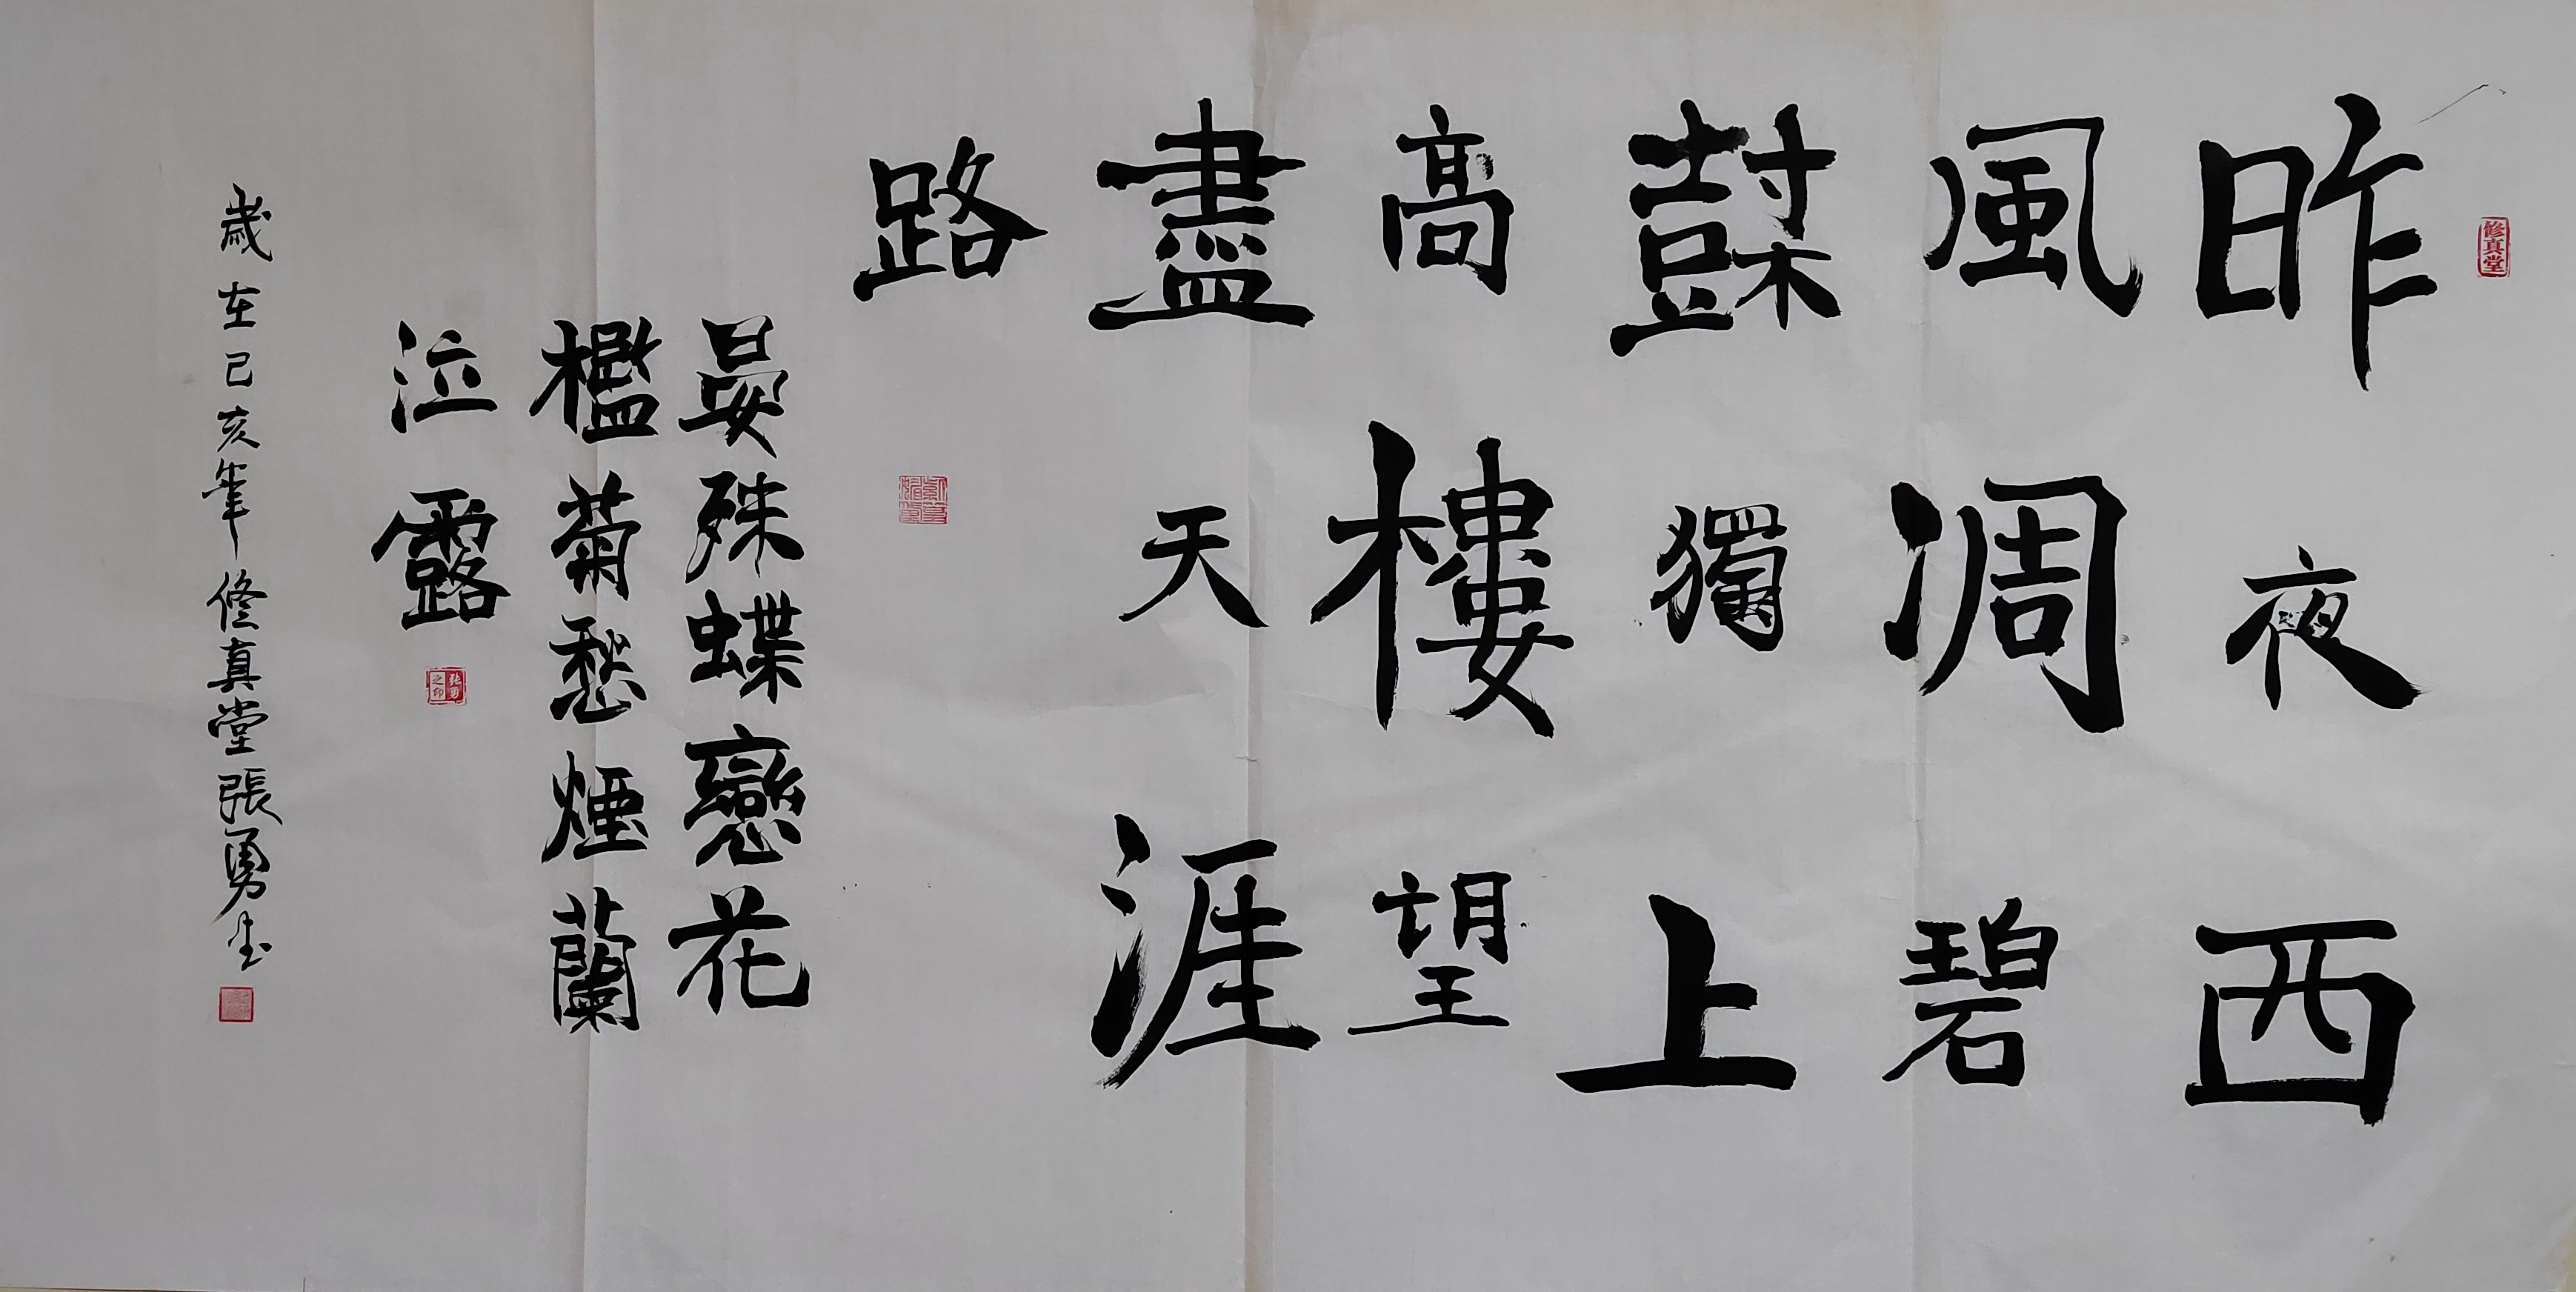 修真堂
昨夜西
風凋碧
樹獨上
高樓望
盡天涯
路
晏殊蝶戀花
檻菊愁煙蘭
泣露
張勇之印
歲在己亥年修真堂張勇書